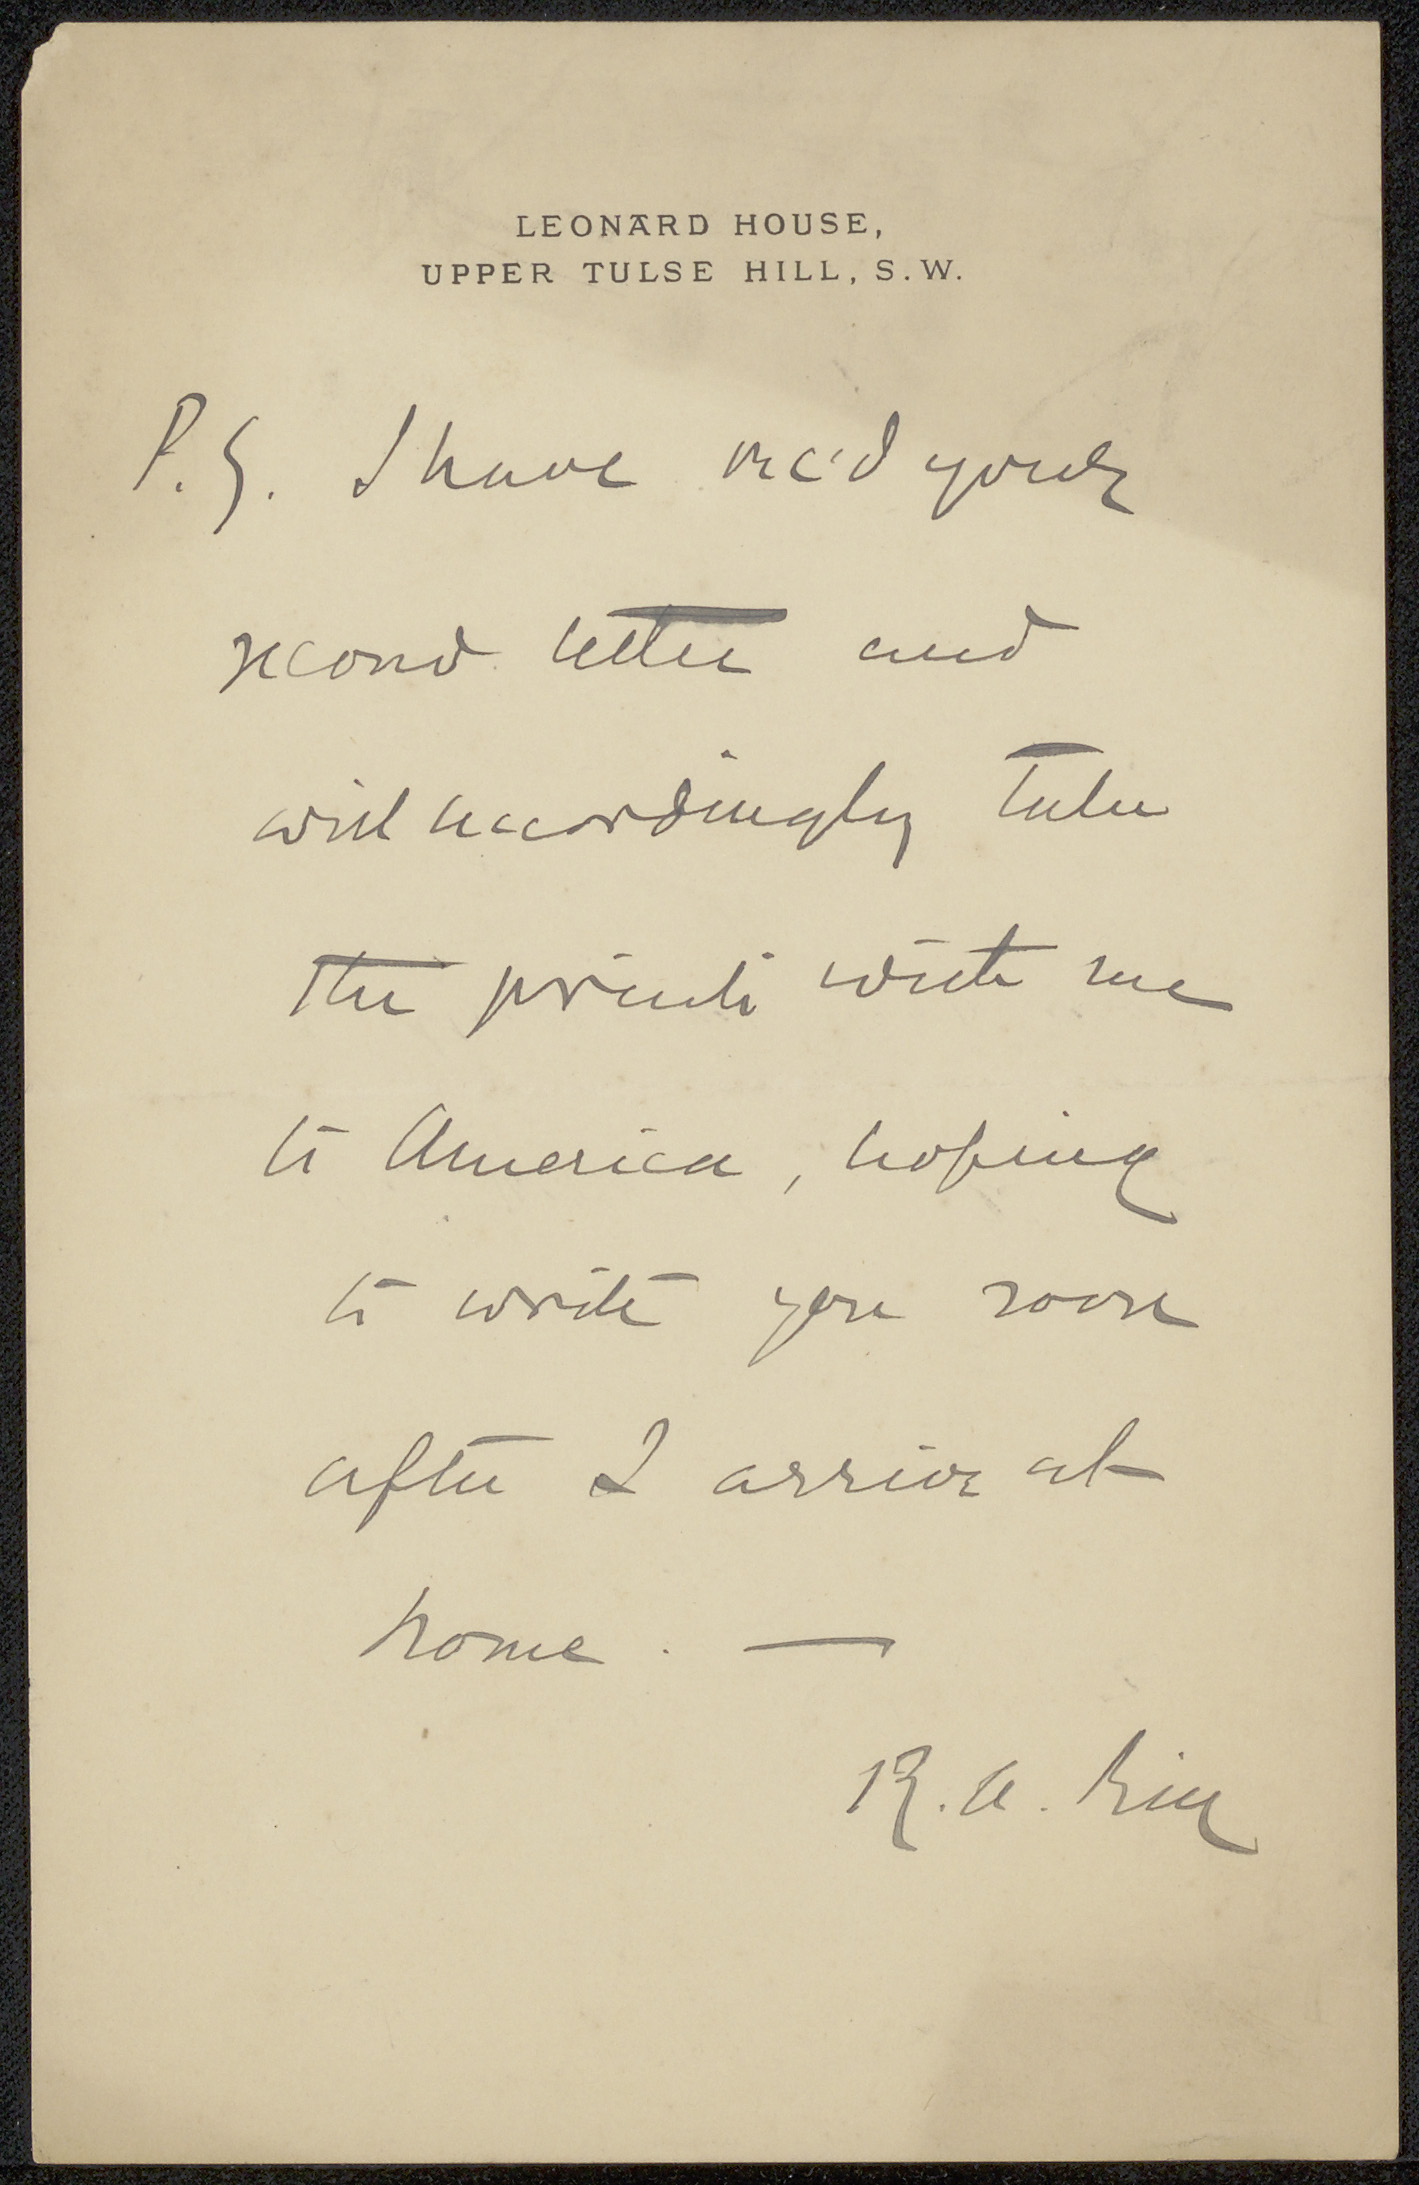 LEONARD HOUSE,
UPPER TULSE HILL, S.W.
P.S. I have rec'd your
second letter and
will accordingly take
the prints with me
to America, hoping
to write you soon
after I arrive at
home. —
R. A. Rice